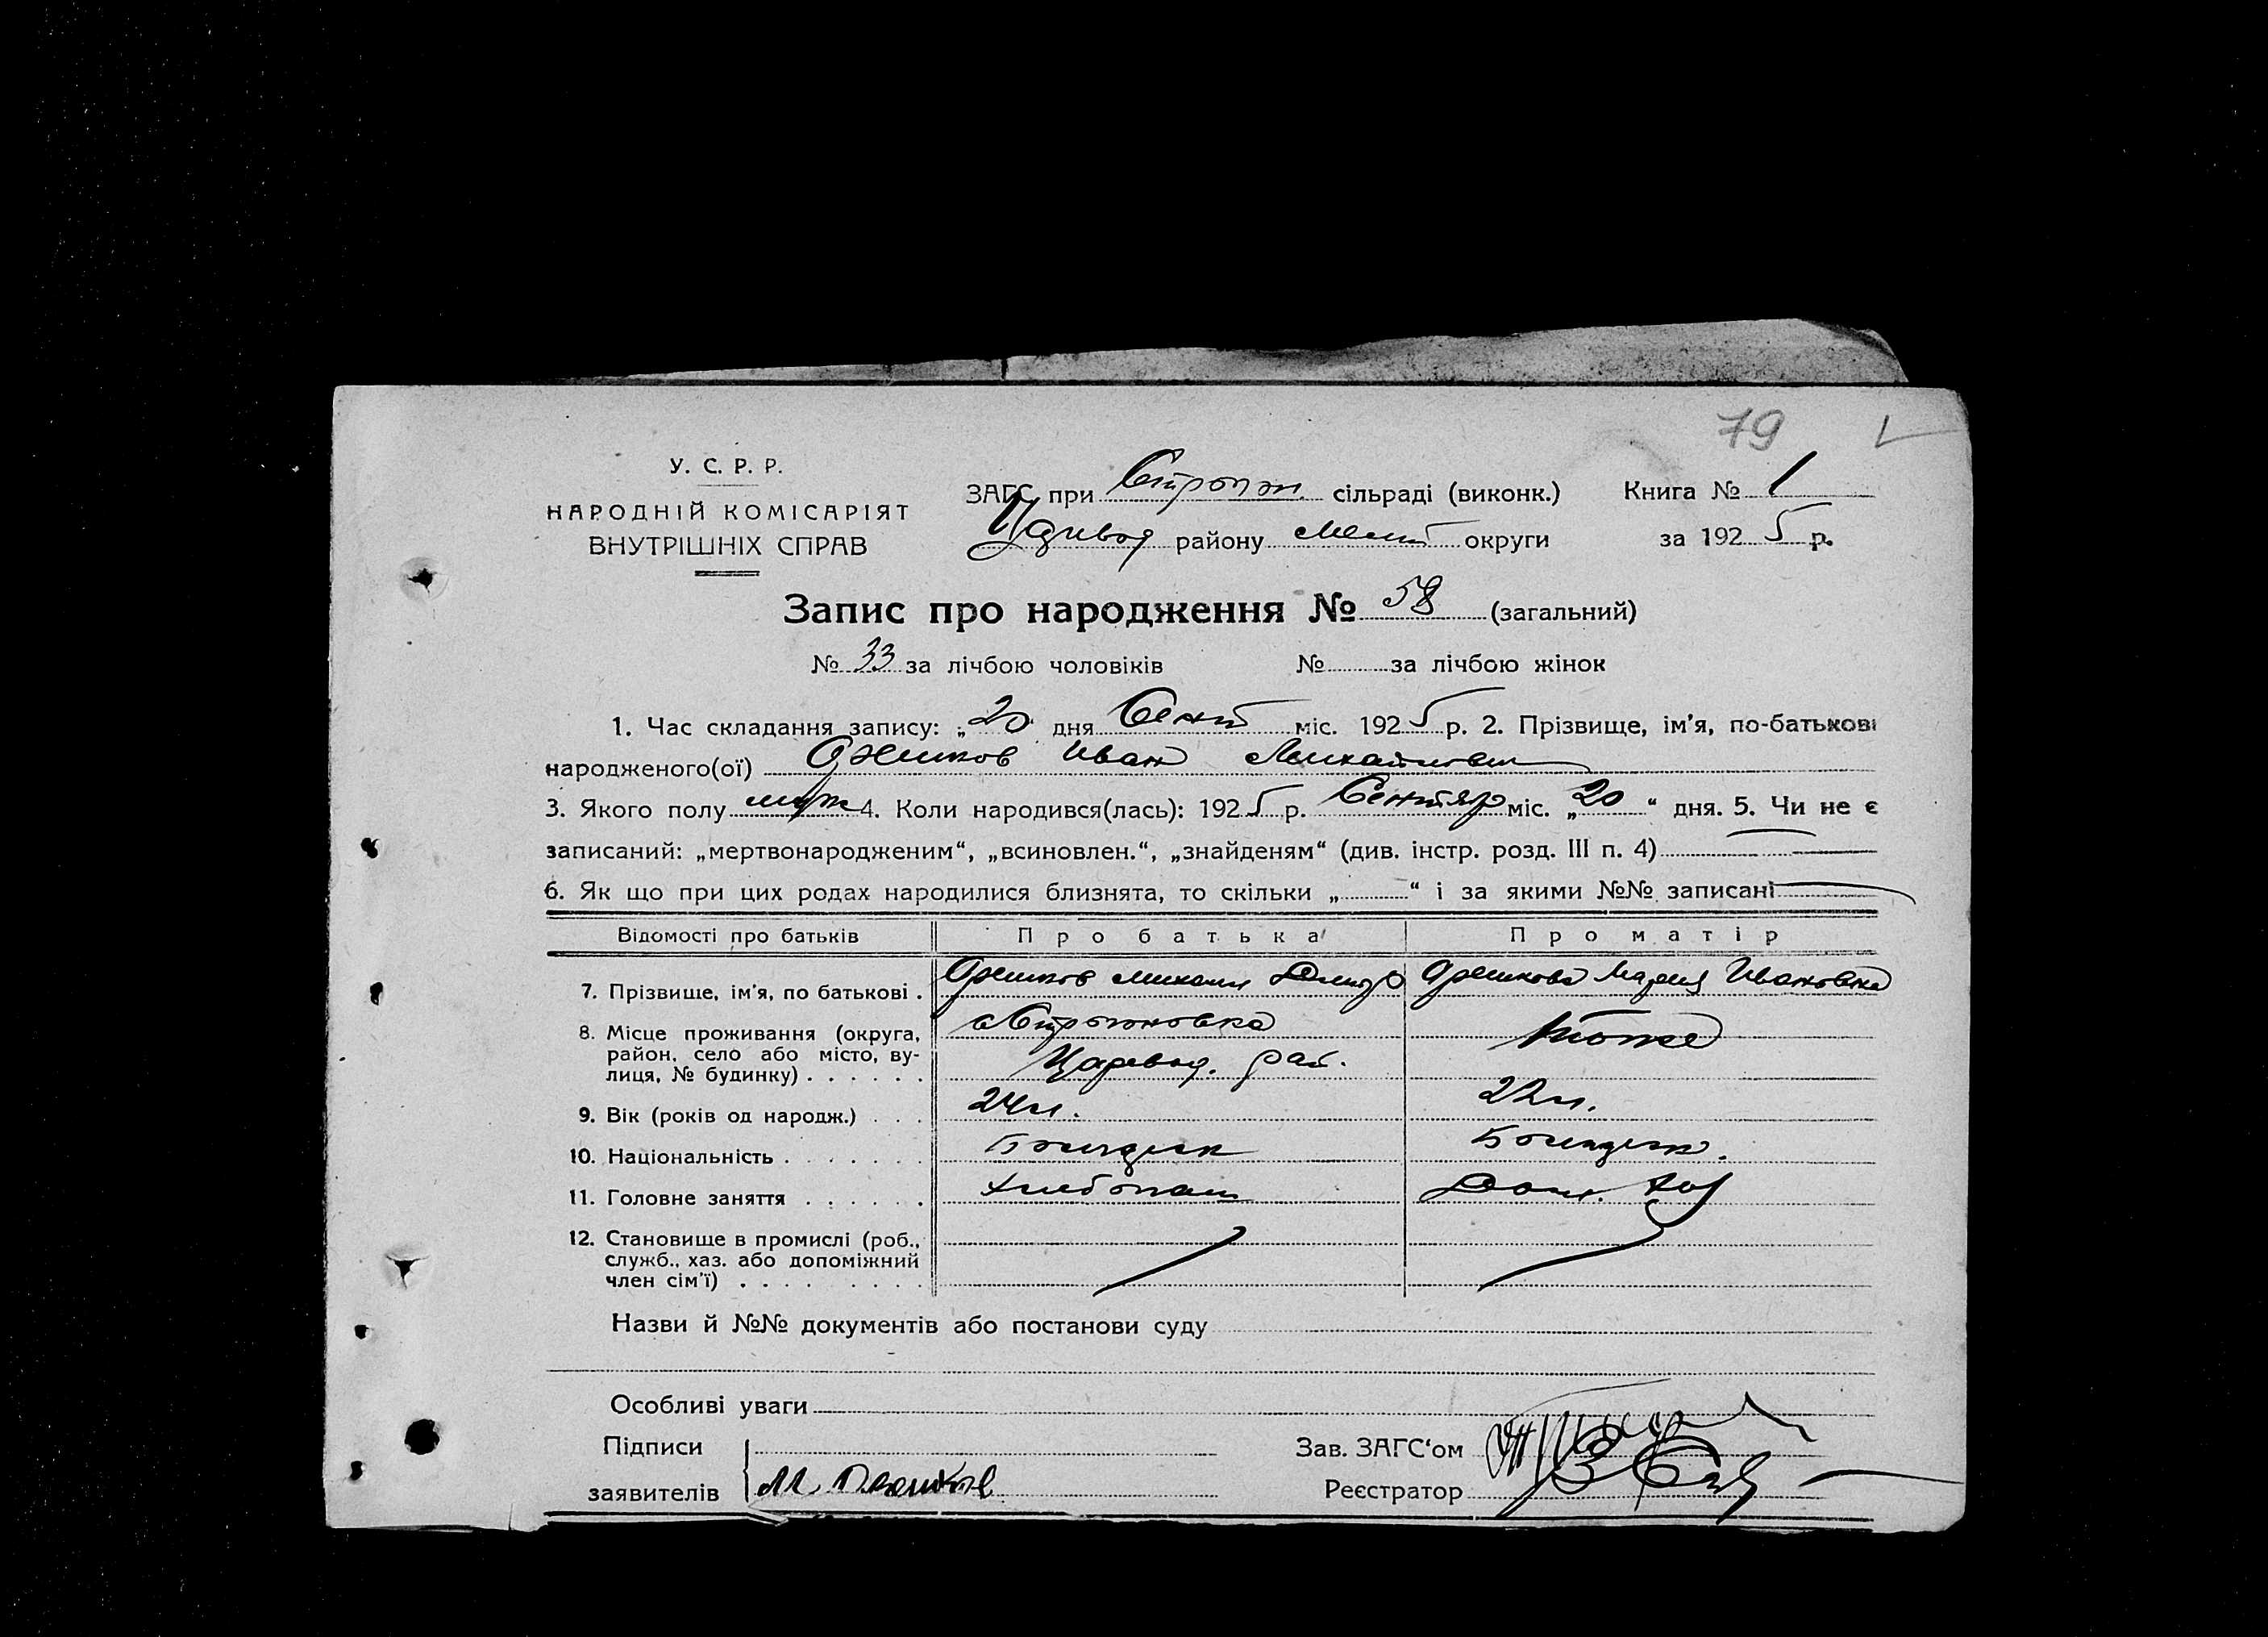 79
У. С. Р. Р.
НАРОДНІЙ КОМІСАРІЯТ
ВНУТРІШНІХ СПРАВ
ЗАГС при Строган. сільраді (виконк.) Книга № 1
району Мелит округи за 1925 р.
Запис про народження № 58 (загальний)
№ 33 за лічбою чоловіків № за лічбою жінок
1. Час складання запису: „20 дня Сент міс. 1925 р. 2. Прізвище, ім’я, по-батькові
народженого(ої) Иван Михайлович
3. Якого полу муж 4. Коли народився(лась): 1925 р. Сентяр міс. „20“ дня. 5. Чи не є
записаний: „мертвонародженим“, „всиновлен.“, „знайденям“ (див. інстр. розд. III п. 4)
6. Як що при цих родах народилися близнята, то скільки „ “ і за якими №№ записані
Відомості про батьків Про батька Про матір
7. Прізвище, ім’я, по батькові . Михаил Мария Ивановна
8. Місце проживання (округа,
район, село або місто, ву-
лиця, № будинку) . . . . . .
с Строгановка
Царевод. рай.
тоже
9. Вік (років од народж.) . . . 24 л. 22 л.
10. Національність . . . . . . .
11. Головне заняття . . . . . . Хлебопаш Дом. хоз
12. Становище в промислі (роб.,
служб., хаз. або допоміжний
член сім’ї) . . . . . . . . .
Назви й №№ документів або постанови суду
Особливі уваги
Підписи
заявителів М
Зав. ЗАГС‘ом
Реєстратор